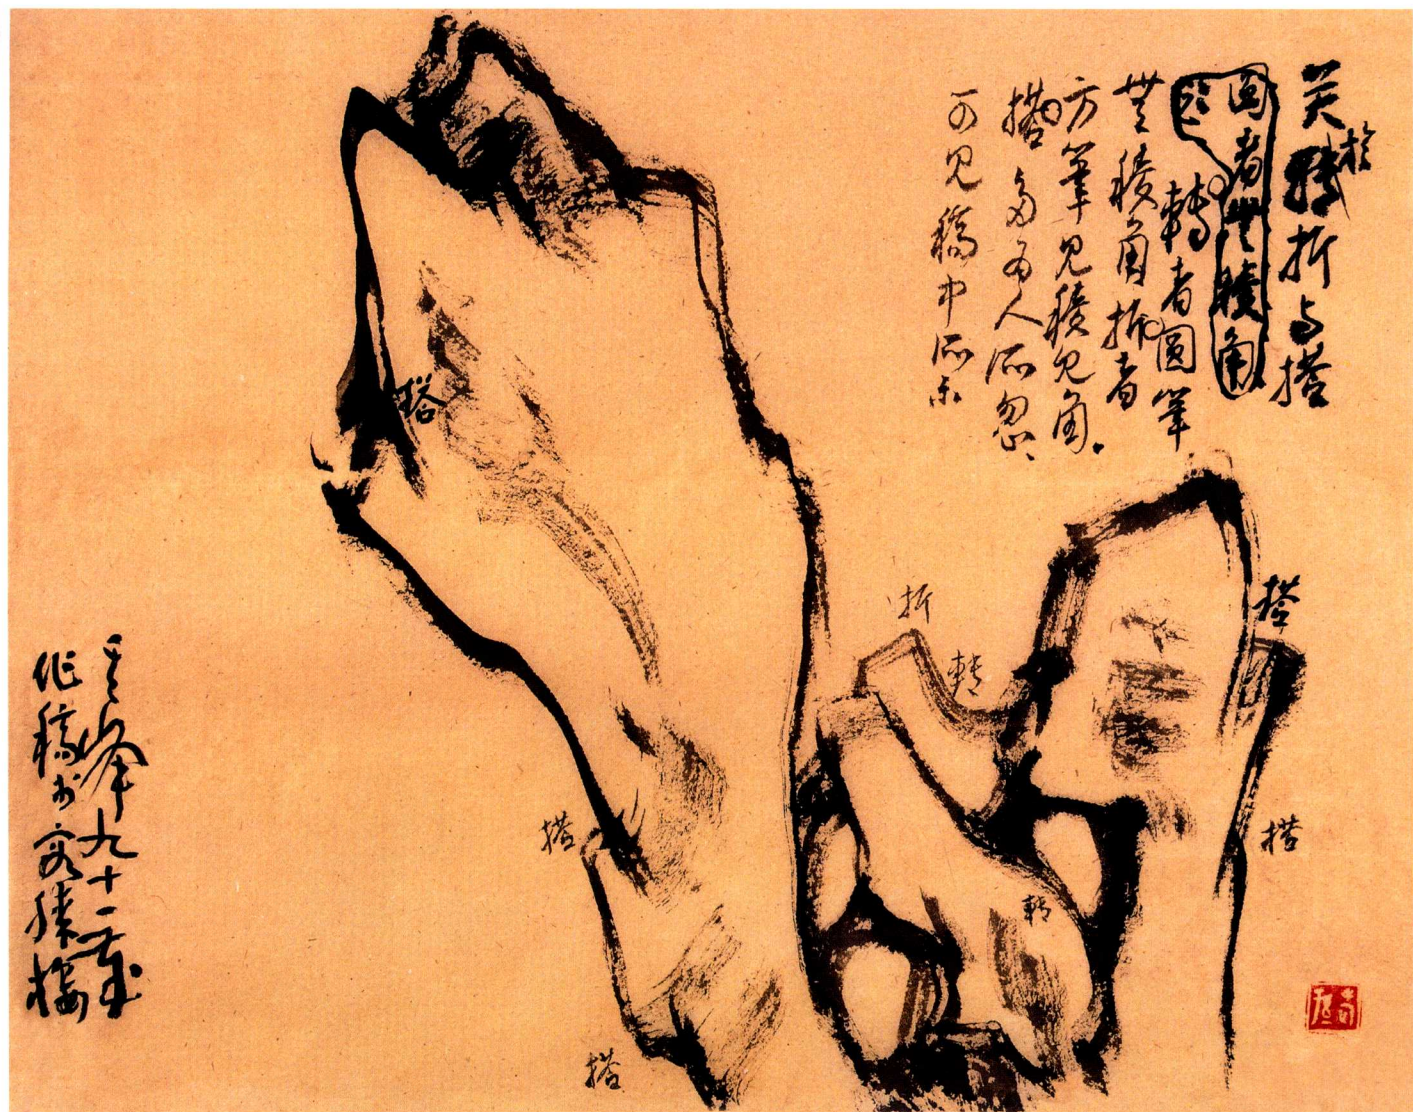 关于转折与搭
圆者无棱角
转者圆笔
无棱角折者
方笔见棱见角。
搭多为人所忽、
可见稿中所示
搭
折
轉
搭
搭
搭
轉
搭
峰九十一岁
作稿於